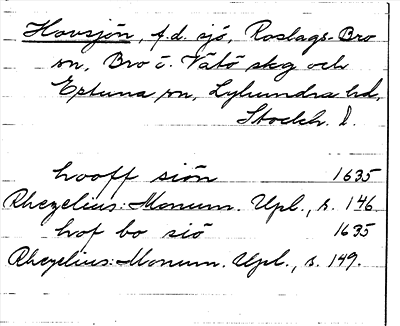 Hovsjön, f.d. sjö, Roslags-Bro
sn, Bro o. Vätö skg och
Estuna sn, Lyhundra hd,
Stockh. l.
hooff siön 1635
Rhezelius: Monum. Upl., s. 146
hof bo siö 1635
Rhezelius: Monum. Upl., s. 149.